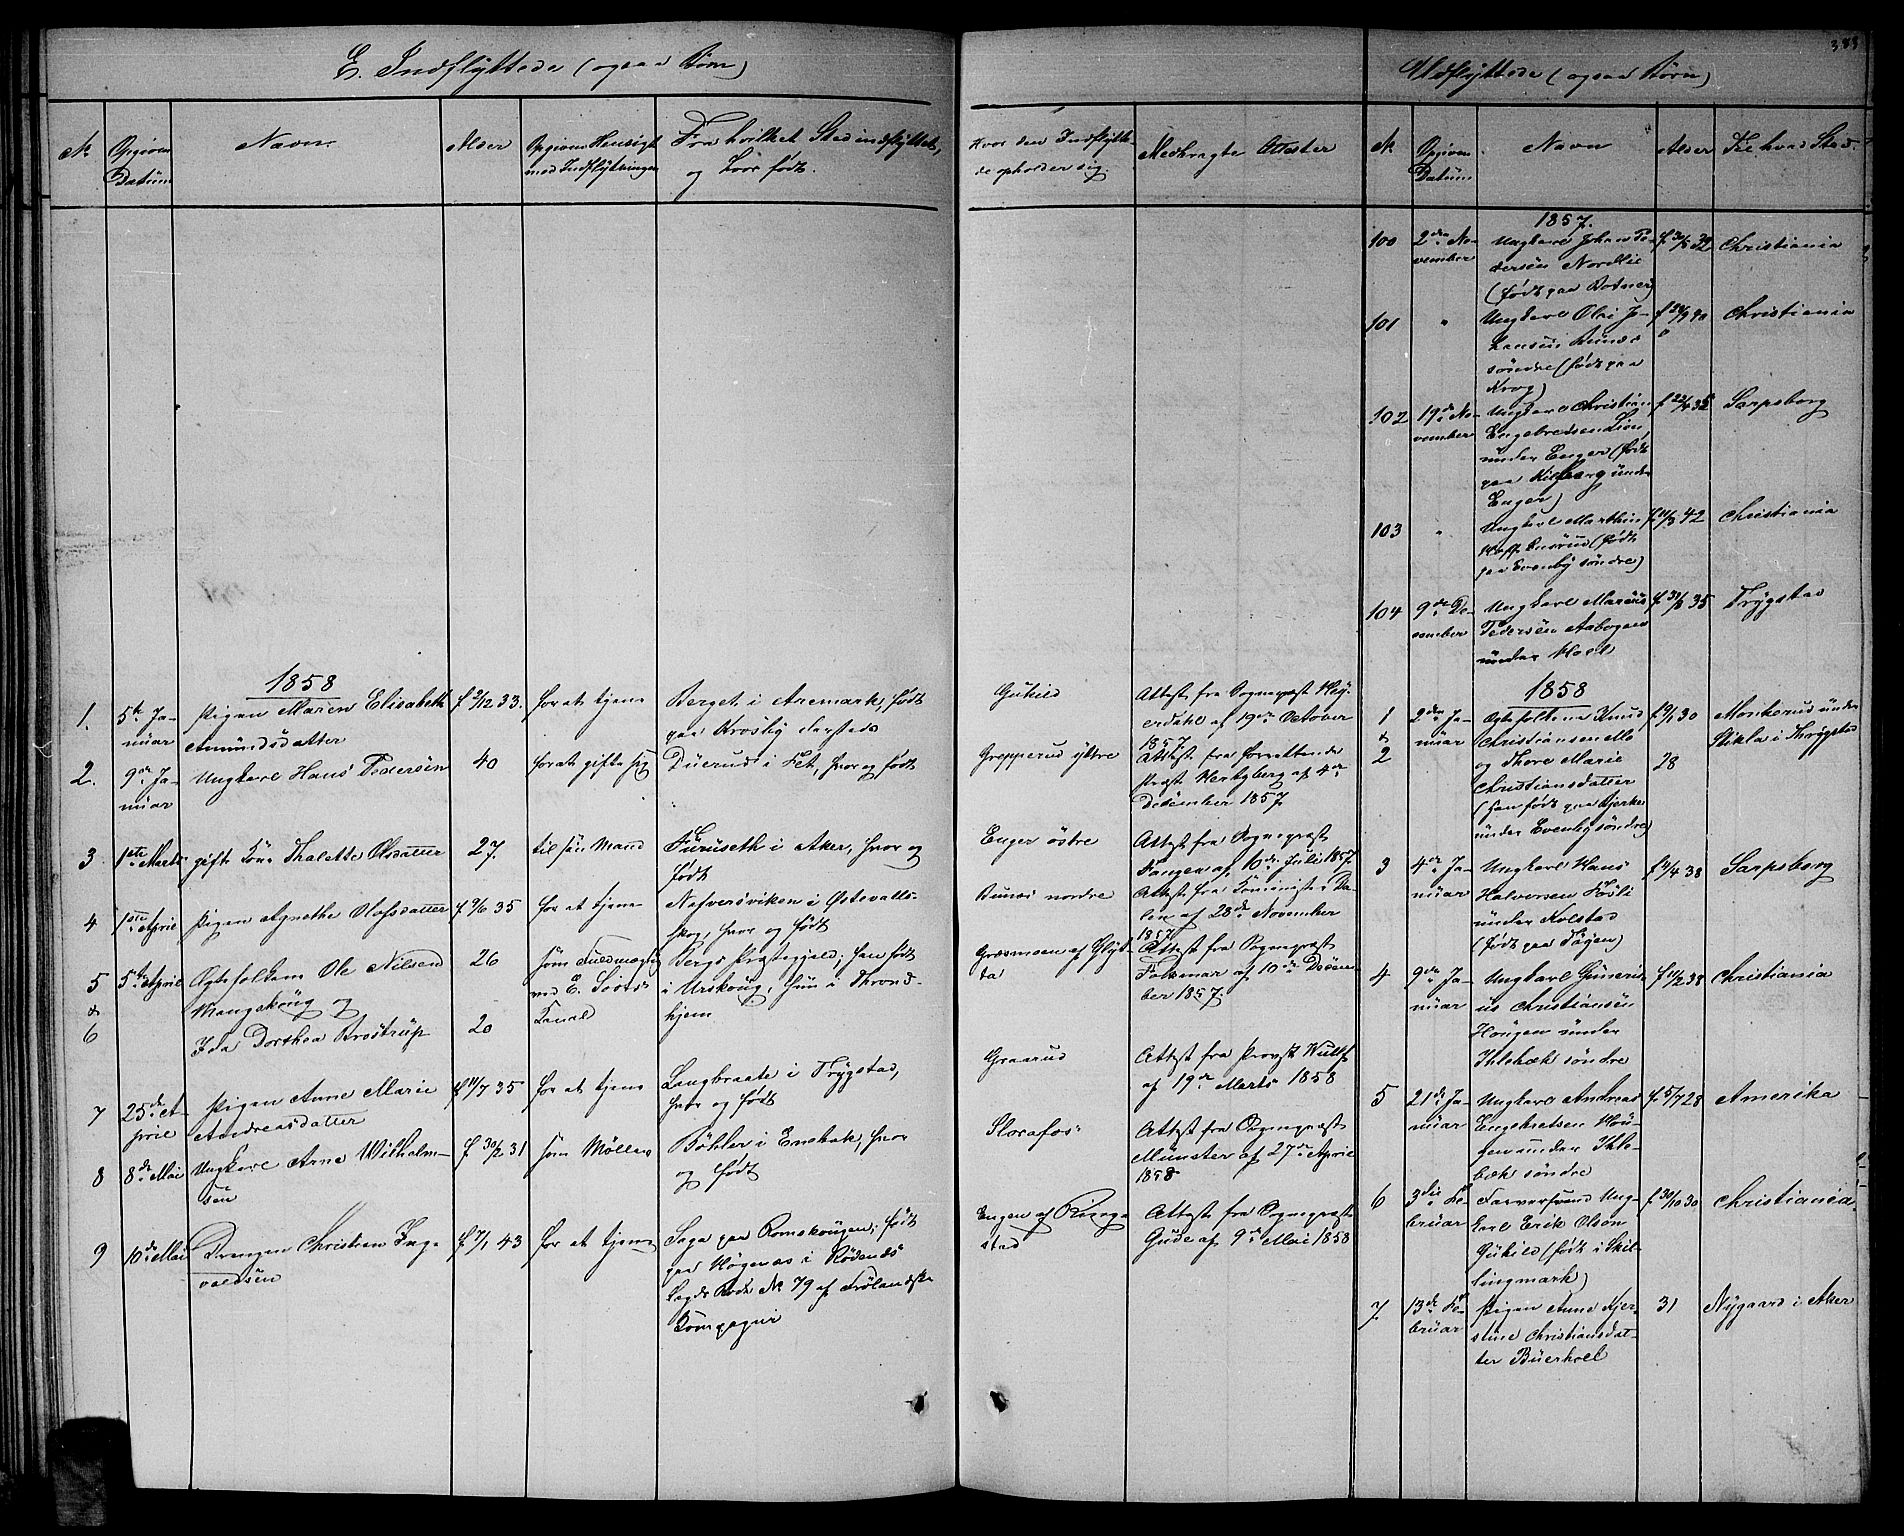 E. Indflyttede (ogsaa Børn)
No
Opgiven Datum
Navn
Alder
Opgiven Hensigt med Indflytningen
Fra hvilket Sted indflyttet, og hvor født.
Hvor den Indflyttede opholder sig.
Medbragte Attester
1858
1.
5te Januar
Pigen Maren Elisabeth
Amundsdatter
f 2/12 33.
for at tjene
Berget i Aremark, født
paa Krosby dersteds
Gukild
Attest fra Sognepræst Heyerdahl af 19de October
1857.
2.
9de Januar
Ungkarl Hans Pedersen
40
for at gifte sig
Duerud i Fet, hvor og født
Grepperud ytre
Attest fra forrettende
Præst Hertzberg af 4de
December 1857.
3
1ste Marts
gift Kone Thalette Olsdatter
27.
til sin Mand
Furuseth i Aker, hvor og
født
Enger østre
Attest fra Sognepræst
Tangen af 10de Juli 1857.
4
1ste April
Pigen Agnethe Olafsdatter
f 9/6 35
for at tjene
Nefversviken i Østevallskog, hvor og født
nordre
Attest fra Kominister
af 28de November
1857.
5
&
6
5te April
Ægtefolkene Ole Nilsen
Mangskoug og
Ida Dorthea Brostrup
26
20
som Fuldmægtig
ved E. Soots
Kanal
Bergs Præstegjeld; han født
i Urskoug, hun i Throndhjem
Græsmoen af
Attest fra Sognepræst
Folkmar af 10de December 1857.
7
25de April
Pigen Anne Marie
Andreasdatter
f 11/7 35
for at tjene
Langbraate i Trygstad,
hvor og født
Graarud
Attest fra Provst Wulf
af 19de Marts 1858
8
8de Mai
Ungkarl Arne Wilhelmsen
f 30/2 31
som Møller
Bøhler i Enebak, hvor
og født
Slorafos
Attest fra Sognepræst
Münster af 27de April
1858
9
10de Mai
Drengen Christian Ingvaldsen
f 7/1 43
for at tjene
Saga paa Romskougen; født
paa Høgenæs i Rødenæs
Lægds Rode No 79 af Frølandske
Kompagni
Engen af Ringestad
Attest fra Sognepræst
Gude af 9de Mai 1858
383
Udflyttede (ogsaa Børn)
No
Opgiven Datum
Navn
Alder
Til hvad Sted.
1857.
100
2den November
Ungkarl Johan Pedersen Nordlie
(født paa Botner)
f 30/5 32
Christiania
101
"
Ungkarl Olai Johansen
søndre (født paa
Krog)
Christiania
102
19de November
Ungkarl Christian
Engebredsen Lien
under Enger (født
paa under
Enger)
f 22/4 35
Sarpsborg
103
"
Ungkarl Marthin
(født
paa Evenby søndre)
f 11/3 42
Christiania
104
9de December
Ungkarl Marius
Pedersen Aabogen
under
f 31/3 35
Trygstad
1858
1
&
2
2den Januar
Ægtefolkene Knud
Christiansen Mo
og Thore Marie
Christiansdatter
(han født paa Bjerke
under Evenby søndre)
f 19/1 30
28
Monkerud under
Stikla i Thrygstad
3
4de Januar
Ungkarl Hans
Halvorsen
under Kolstad
(født paa Togen)
f 2/4 38
Sarpsborg
4
9de Januar
Ungkarl Gunerius Christiansen
Hougen under
Ihlebæk søndre
f 11/2 38
Christiania
5
21de Januar
Ungkarl Andreas
Engebretsen Hougen under Ihlebæk søndre
f. 5/7 28
Amerika
6
3die Februar
Farversvend Ungkarl Erik Olsen
Gukild (født i Skillingmark)
f 30/10 30
Christiania
7.
13de Februar
Pigen Anne Kjerstine Christiansdatter Buerhoel
31
Nygaard i Aker